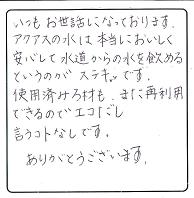 いつもお世話しになっております。
アクアスの水は本当においしく
安心して水道からの水を飲める
というのがステキです。
使用済みろ材も、また再利用
できるのでエコだし
言うコトなしです。
ありがとうございます。